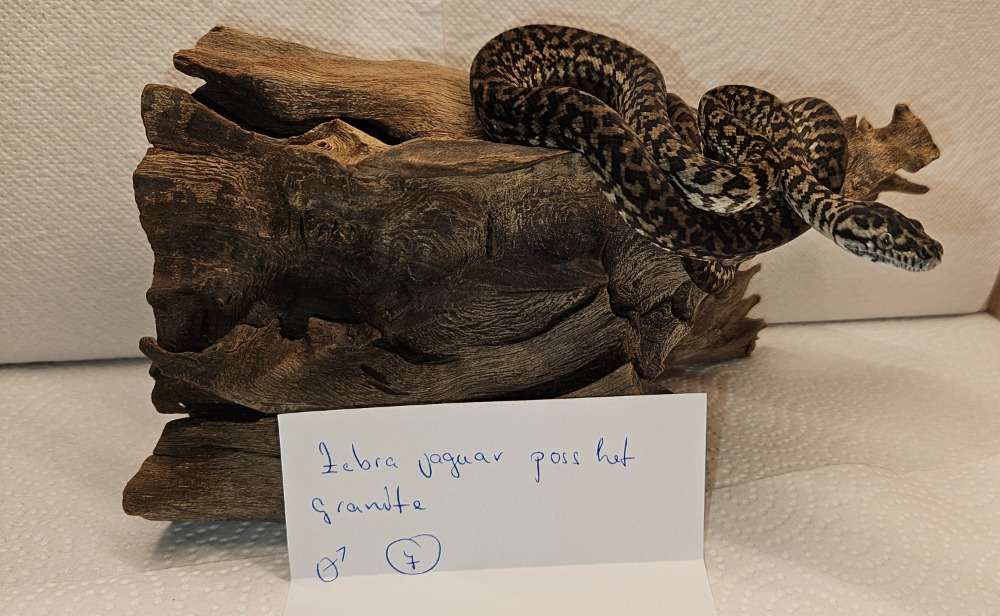 Zebra jaguar poss het
granite
♂ 7